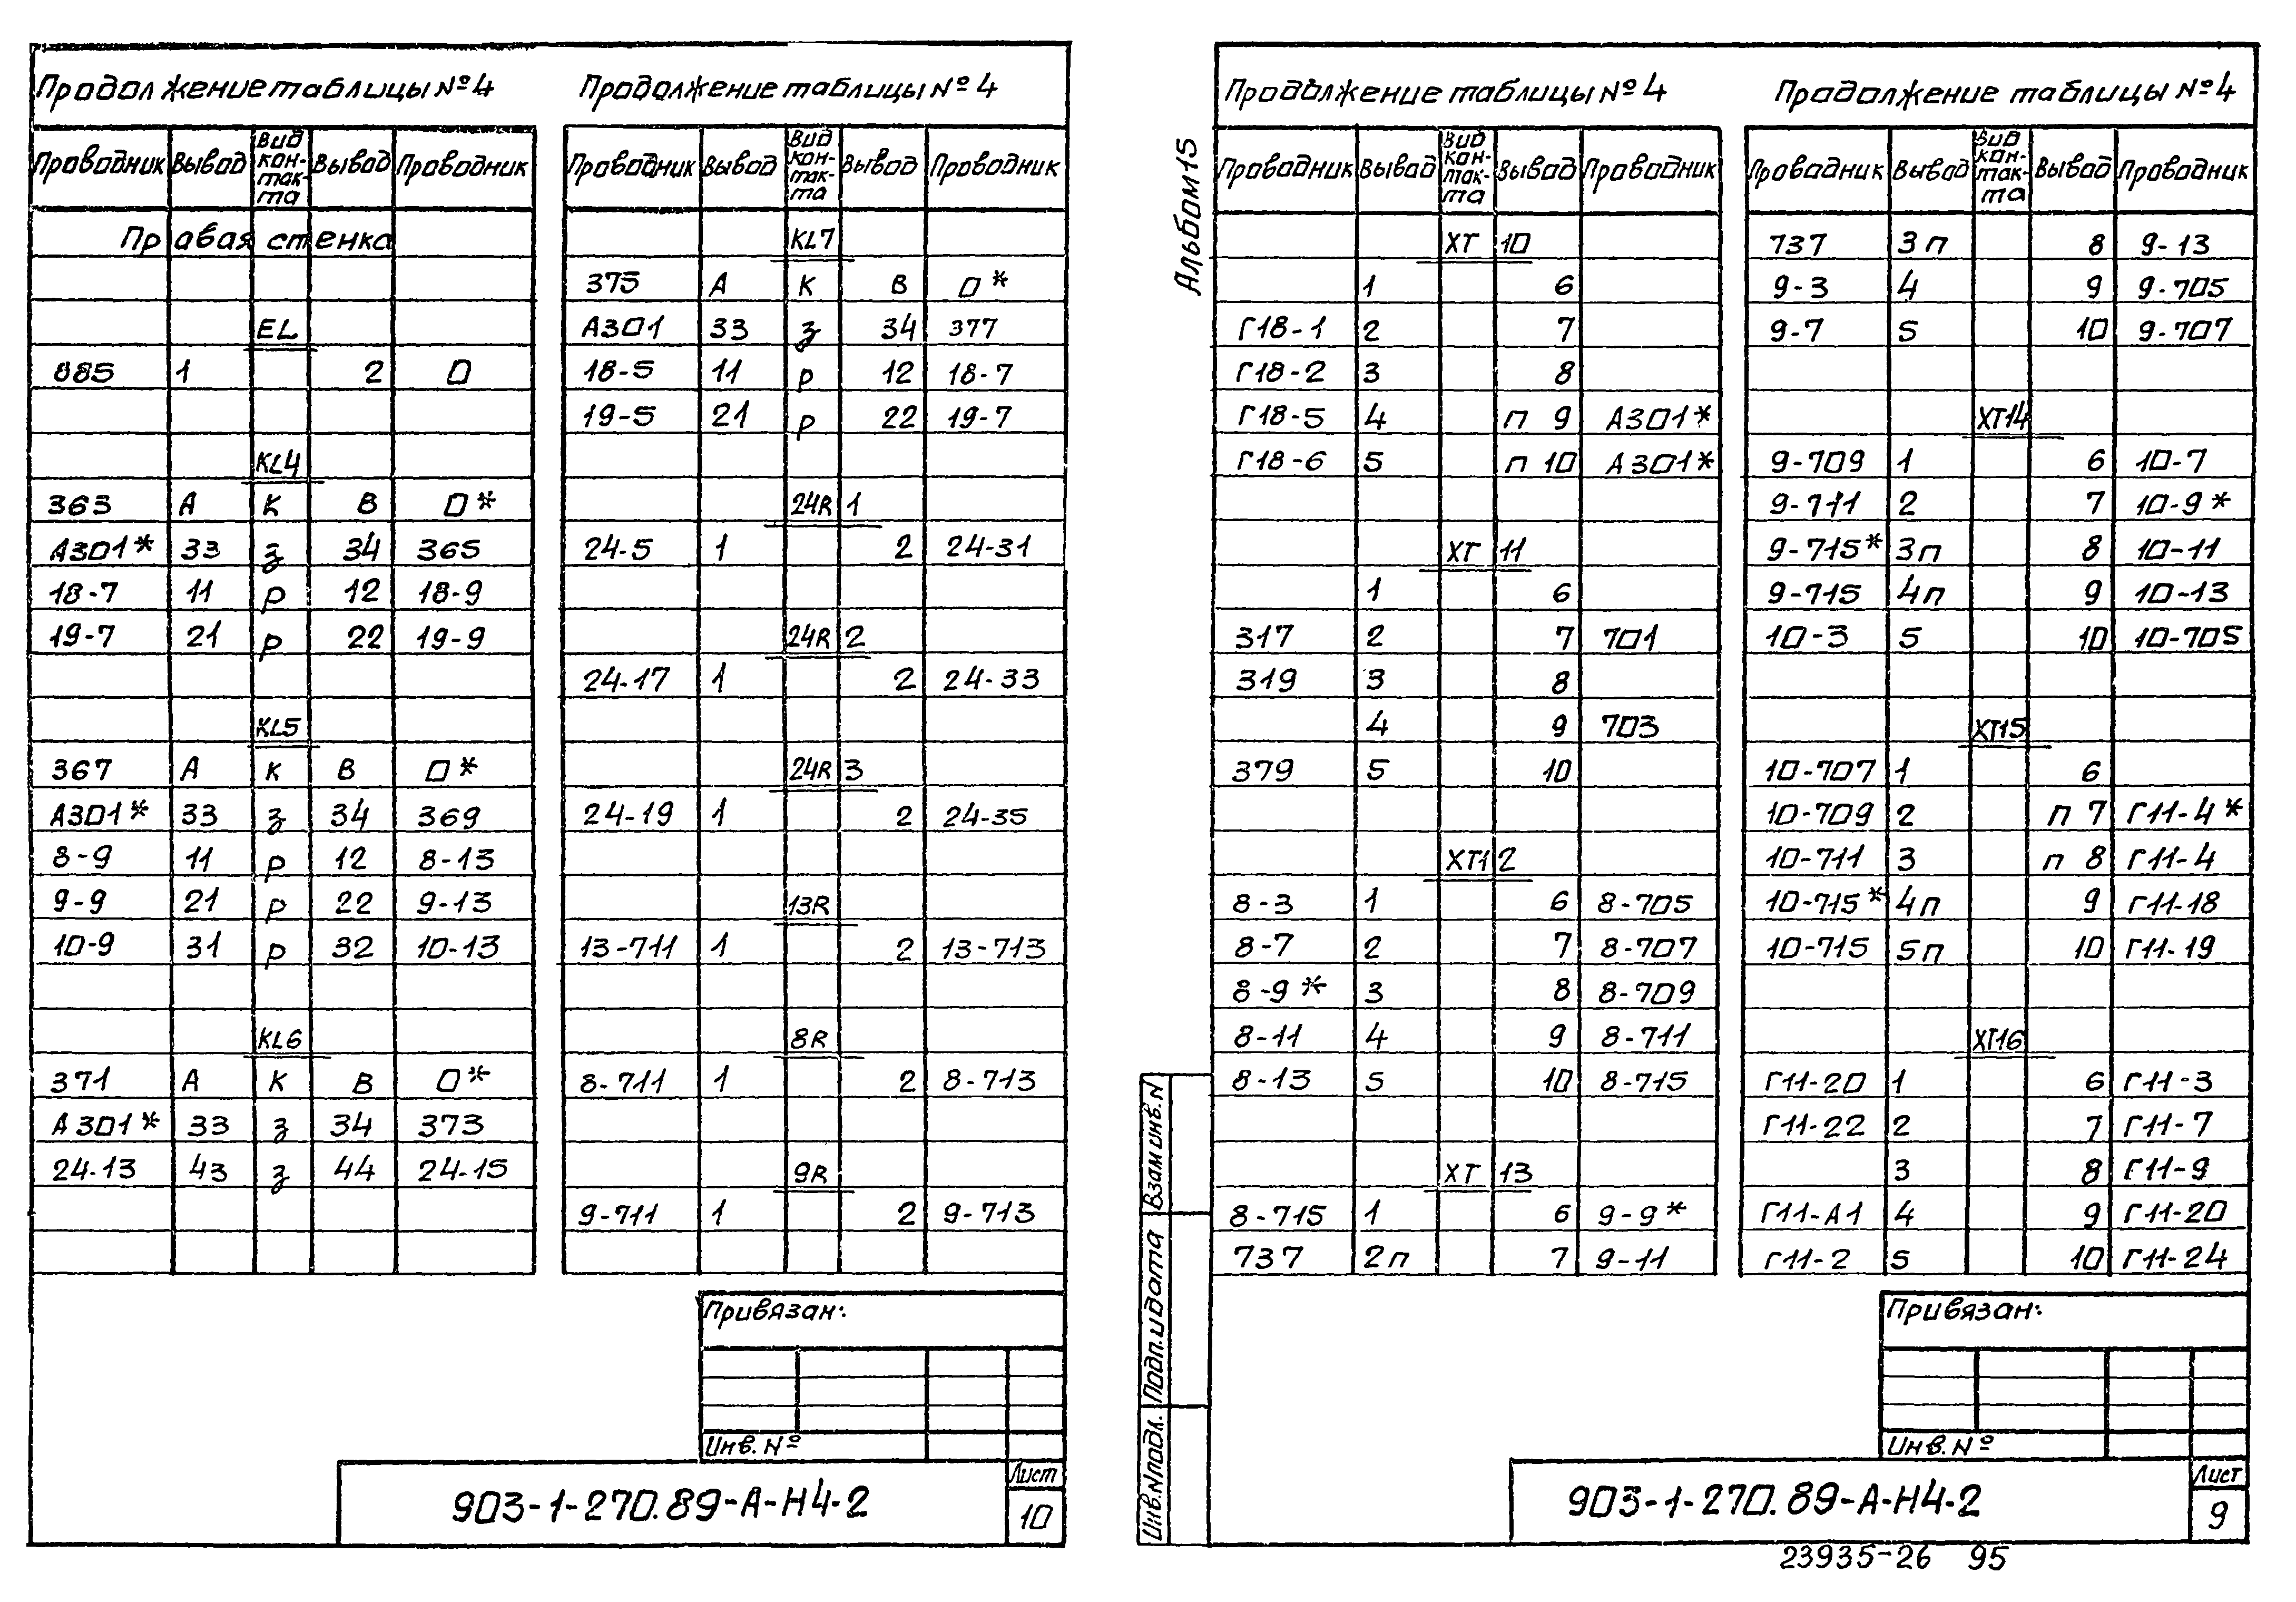 Продолжение таблицы №4
Проводник Вывод Вид контакта Вывод Проводник
Правая стенка
EL
885 1 2 0
KL4
363 А К В 0*
А301* 33 з 34 365
18-7 11 р 12 18-9
19-7 21 р 22 19-9
KL5
367 А К В 0*
А301* 33 з 34 369
8-9 11 р 12 8-13
9-9 21 р 22 9-13
10-9 31 р 32 10-13
KL6
371 А К В 0*
А301* 33 з 34 373
24-13 43 з 44 24-15
Продолжение таблицы №4
Проводник Вывод Вид контакта Вывод Проводник
KL7
375 А К В 0*
А301 33 з 34 377
18-5 11 р 12 18-7
19-5 21 р 22 19-7
24R1
24-5 1 2 24-31
24R2
24-17 1 2 24-33
24R3
24-19 1 2 24-35
13R
13-711 1 2 13-713
8R
8-711 1 2 8-713
9R
9-711 1 2 9-713
Привязан:
Инв. №
903-1-270.89-А-Н4-2
Лист
10
Альбом 15
Продолжение таблицы №4
Проводник Вывод Вид контакта Вывод Проводник
ХТ10
1 6
Г18-1 2 7
Г18-2 3 8
Г18-5 4 п 9 А301*
Г18-6 5 п 10 А301*
ХТ11
1 6
317 2 7 701
319 3 8
4 9 703
379 5 10
ХТ12
8-3 1 6 8-705
8-7 2 7 8-707
8-9* 3 8 8-709
8-11 4 9 8-711
8-13 5 10 8-715
ХТ13
8-715 1 6 9-9*
737 2п 7 9-11
Продолжение таблицы №4
Проводник Вывод Вид контакта Вывод Проводник
737 3п 8 9-13
9-3 4 9 9-705
9-7 5 10 9-707
ХТ14
9-709 1 6 10-7
9-711 2 7 10-9*
9-715* 3п 8 10-11
9-715 4п 9 10-13
10-3 5 10 10-705
ХТ15
10-707 1 6
10-709 2 п 7 Г11-4*
10-711 3 п 8 Г11-4
10-715* 4п 9 Г11-18
10-715 5п 10 Г11-19
ХТ16
Г11-20 1 6 Г11-3
Г11-22 2 7 Г11-7
3 8 Г11-9
Г11-А1 4 9 Г11-20
Г11-2 5 10 Г11-24
Взам инв. N
Подп. и дата
Инв. N подл.
Привязан:
Инв. №
903-1-270.89-А-Н4-2
Лист
9
23935-26 95